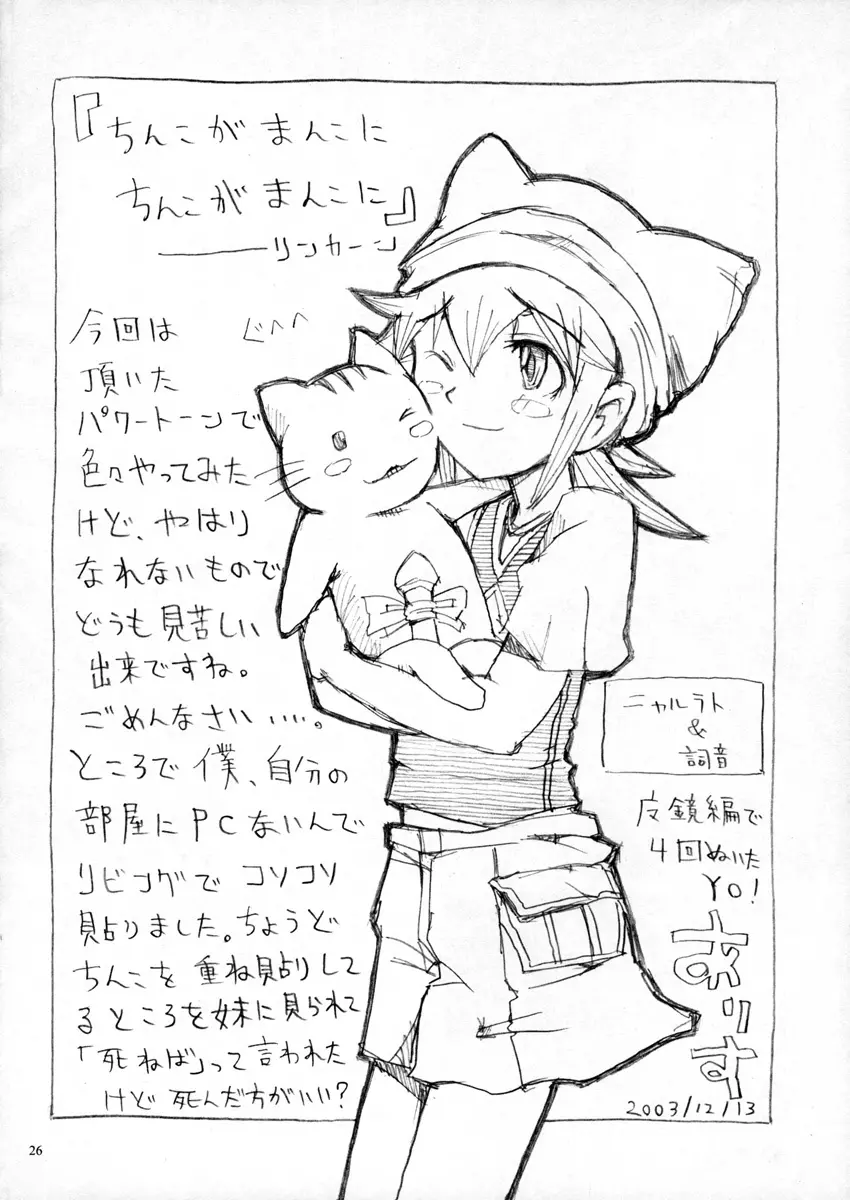 『ちんこが まんこに
ちんこが まんこに』
――――リンカーン
今回は ぐへへ
頂いた
パワートーンで
色々やってみた
けど、やはり
なれないもので
どうも見苦しい
出来ですね。
ごめんなさい……。
ところで僕、自分の
部屋にPCないんで
リビングでコソコソ
貼りました。ちょうど
ちんこを重ね貼りして
るところを妹に見られて
「死ねば」って言われた
けど死んだ方がいい?
ニャルラト
&
詞音
反鏡編で
4回ぬいた
YO!
ありす
2003/12/13
26